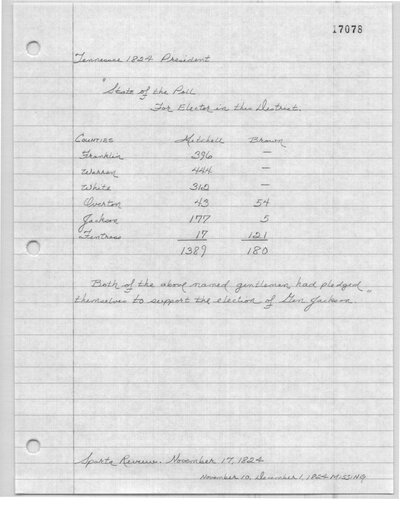 17078
Tennessee 1824 President
"State of the Poll
For Elector in this District.
Counties Mitchell Brown
Franklin 396 —
Warren 444 —
White 312 —
Overton 43 54
Jackson 177 5
Fentress 17 121
1389 180
Both of the above named gentlemen had pledged
themselves to support the election of Gen Jackson."
Sparta Review. November 17, 1824
November 10, December 1, 1824 MISSING